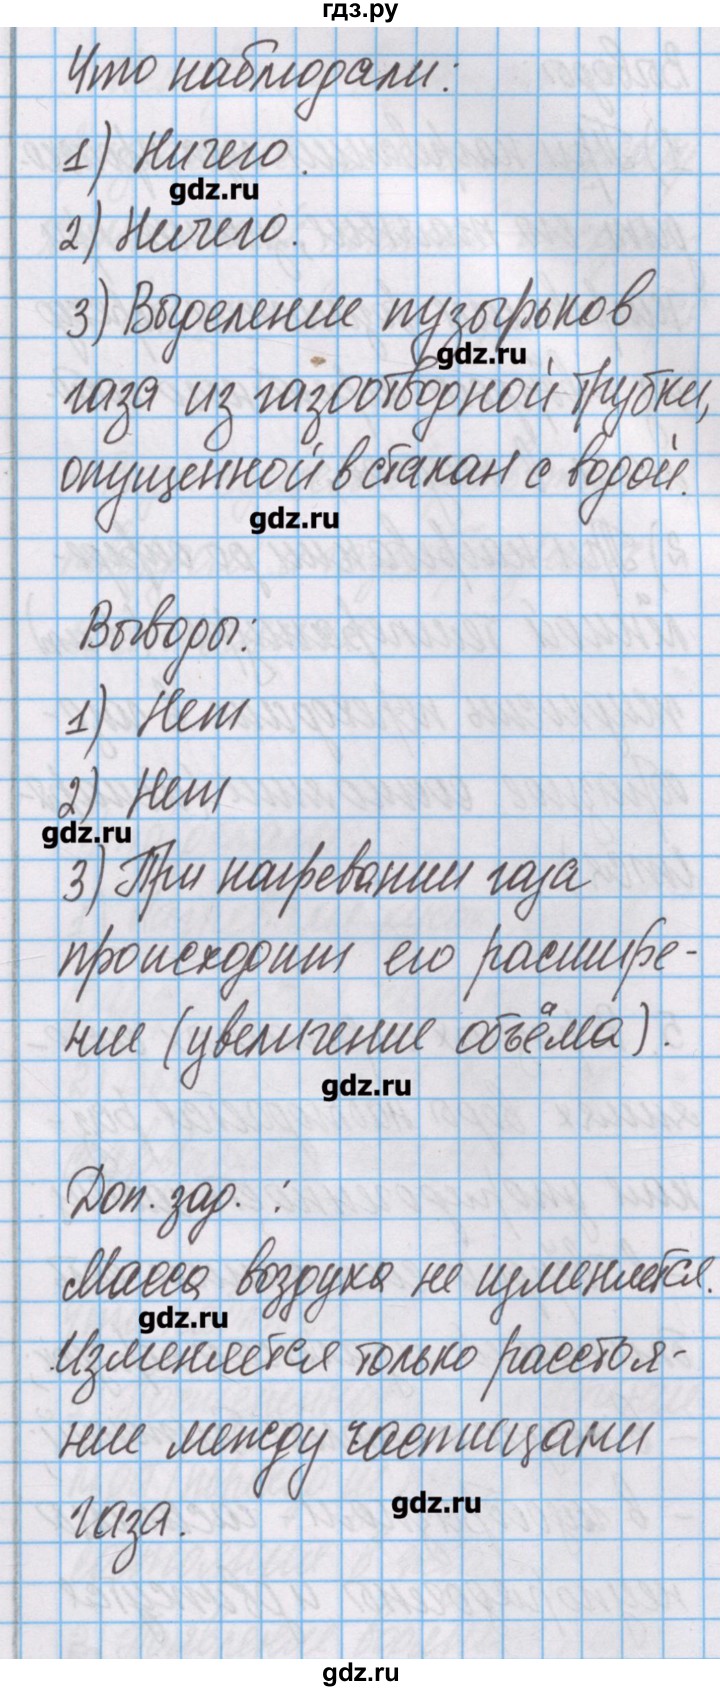 гдз.ру
Что наблюдали:
1) Ничего.
gdz.ru
2) Ничего.
3) Выделение пузырьков
gdz.ru
газа из газоотводной трубки,
опущенной в стакан с водой.
gdz.ru
Выводы:
1) Нет
2) Нет
gdz.ru
3) При нагревании газа
происходит его расшире-
ние (увеличение объёма).
gdz.ru
Доп. зад. :
Масса воздуха не изменяется.
gdz.ru
Изменяется только расстоя-
ние между частицами
gdz.ru
газа.
gdz.ru